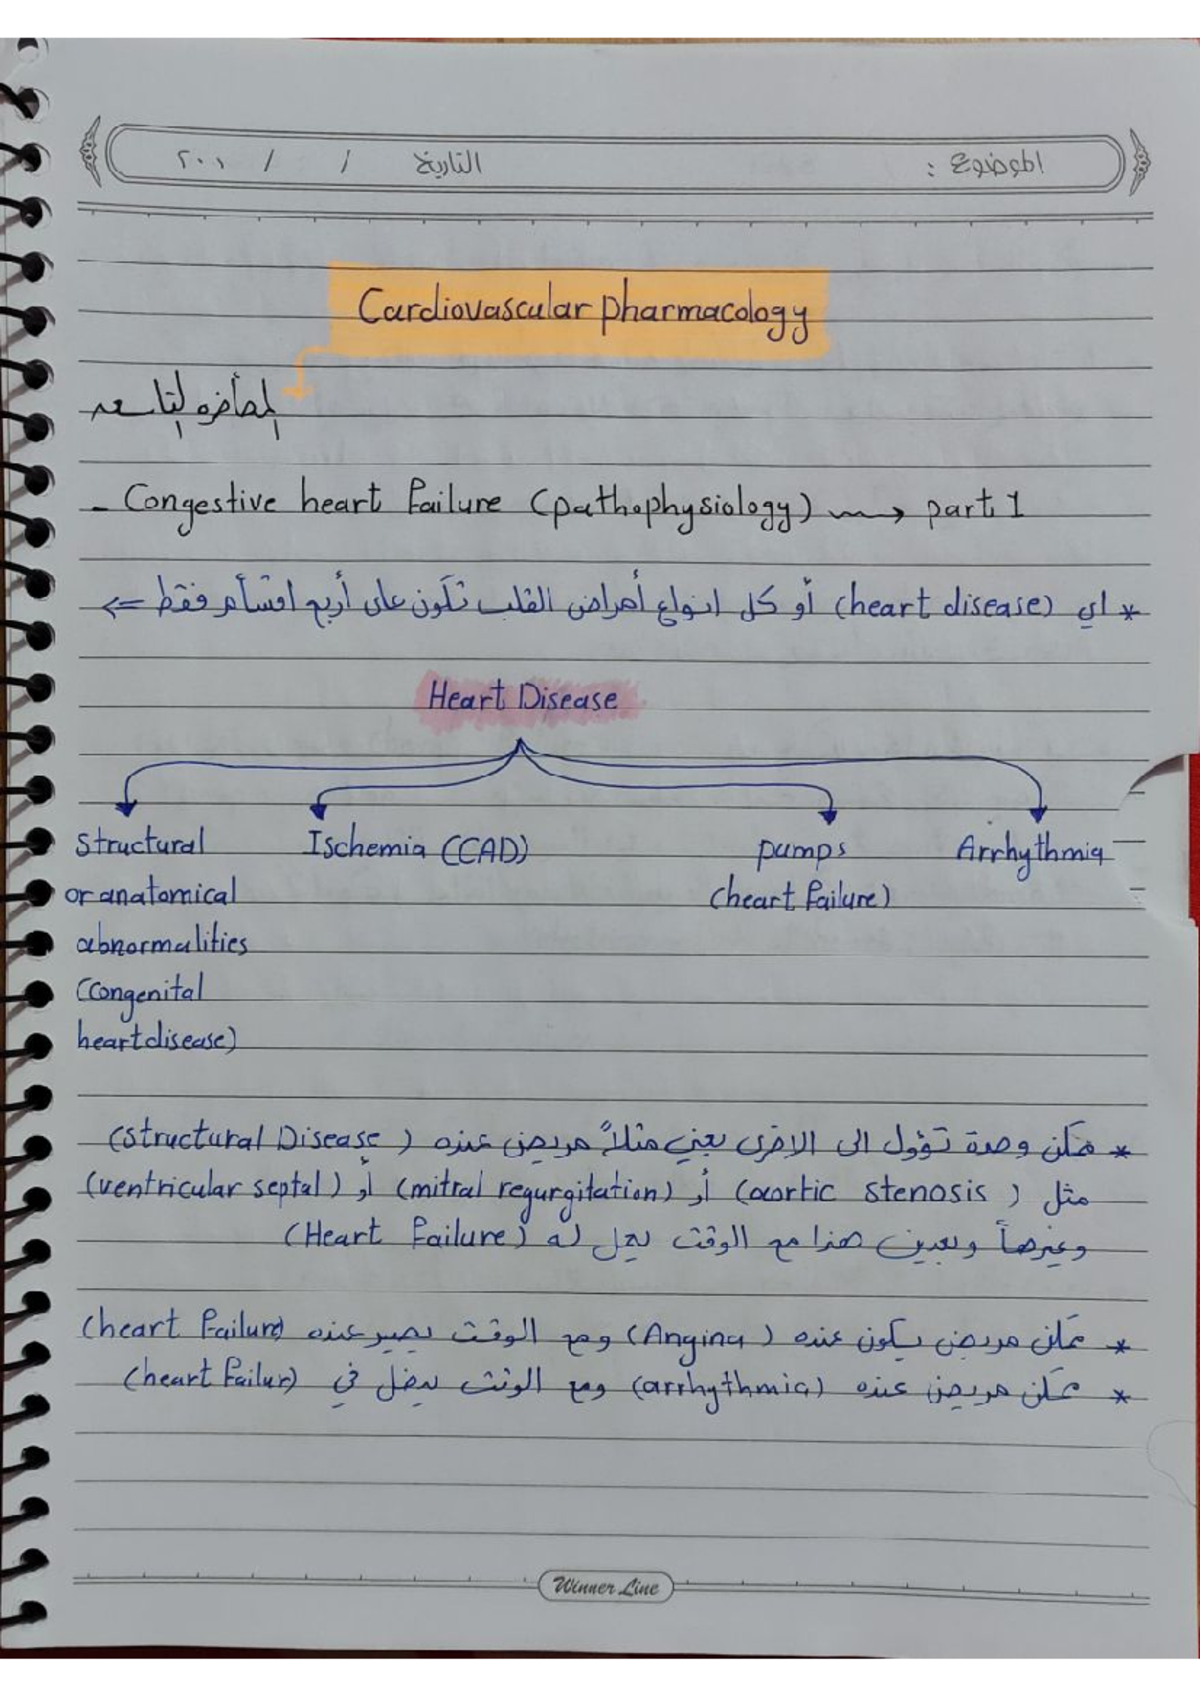 الموضوع : التاريخ / / ٢٠٠١
Cardiovascular pharmacology
المحاضره التاسعه
- Congestive heart failure (pathophysiology) → part 1
* اي (heart disease) أو كل انواع أمراض القلب تكون على أربع اقسام فقط ⇐
Heart Disease
Structural or anatomical abnormalities (Congenital heart disease)
Ischemia (CAD)
pumps (heart failure)
Arrhythmia
* ممكن وحدة تؤول الى الاخرى يعني مثلاً مريض عنده (structural Disease)
مثل (aortic stenosis) أو (mitral regurgitation) أو (ventricular septal)
وغيرها وبعدين هذا مع الوقت يحل له (Heart Failure)
* ممكن مريض يكون عنده (Angina) ومع الوقت يصير عنده (heart failure)
* ممكن مريض عنده (arrhythmia) ومع الوقت يدخل في (heart failur)
Winner Line